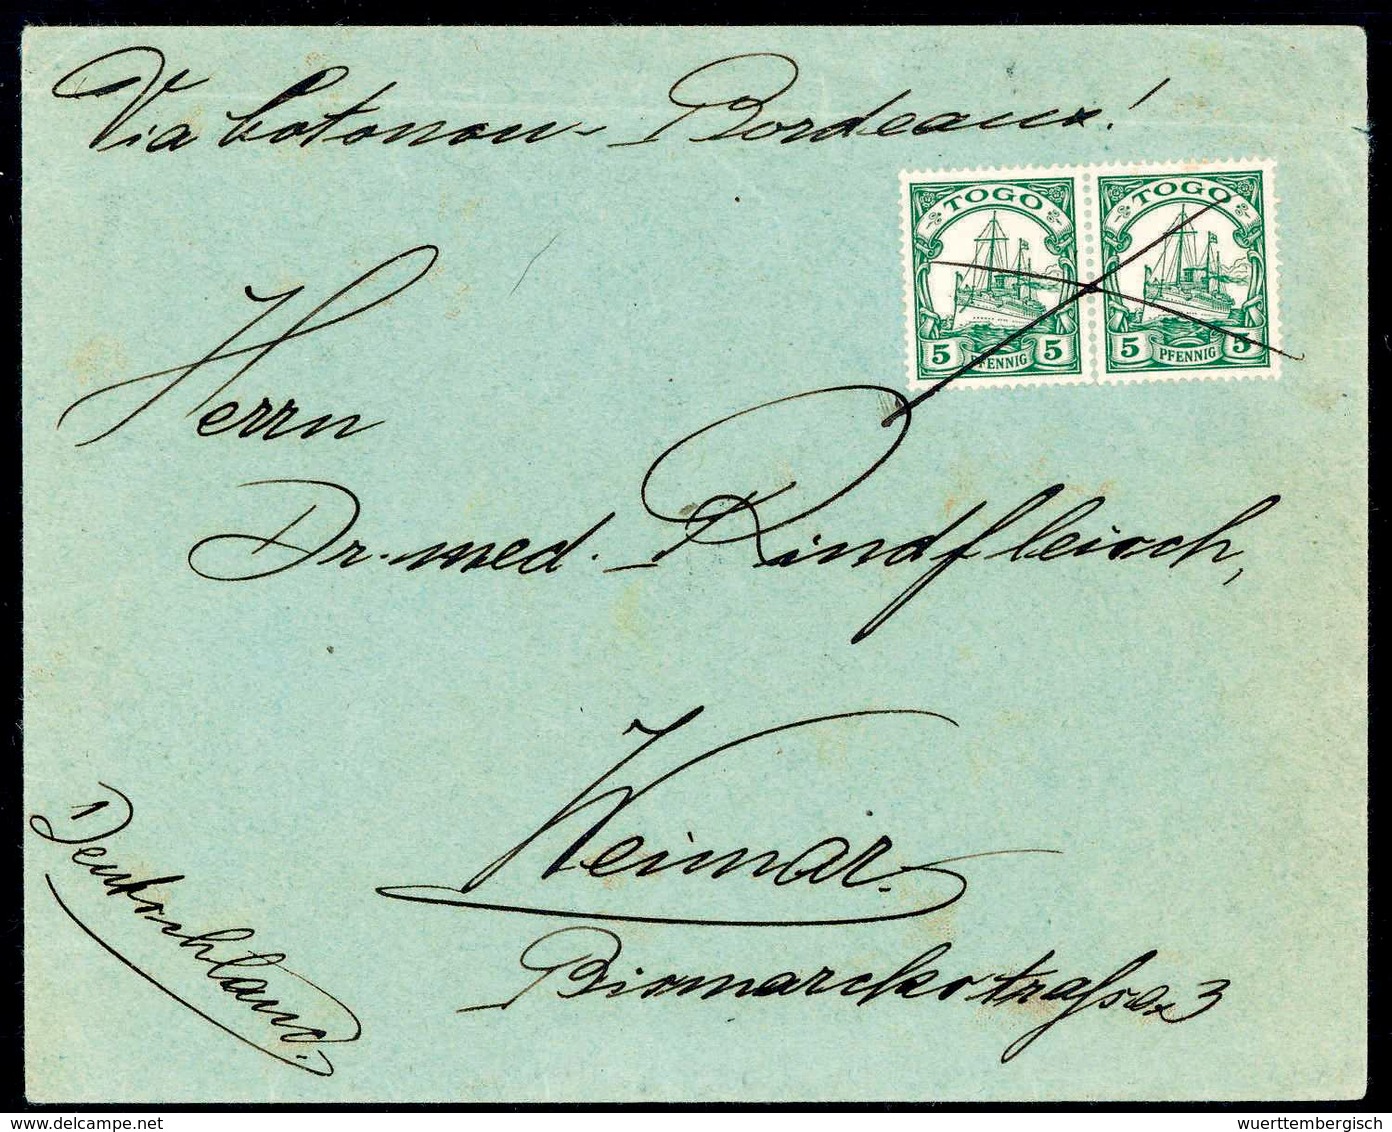 Via Cotonou - Bordeaux!
TOGO TOGO
5 PFENNIG 5 5 PFENNIG 5
Herrn
Dr. med. Rindfleisch,
Weimar.
Bismarckstraße 3
Deutschland.
wuerttembergisch